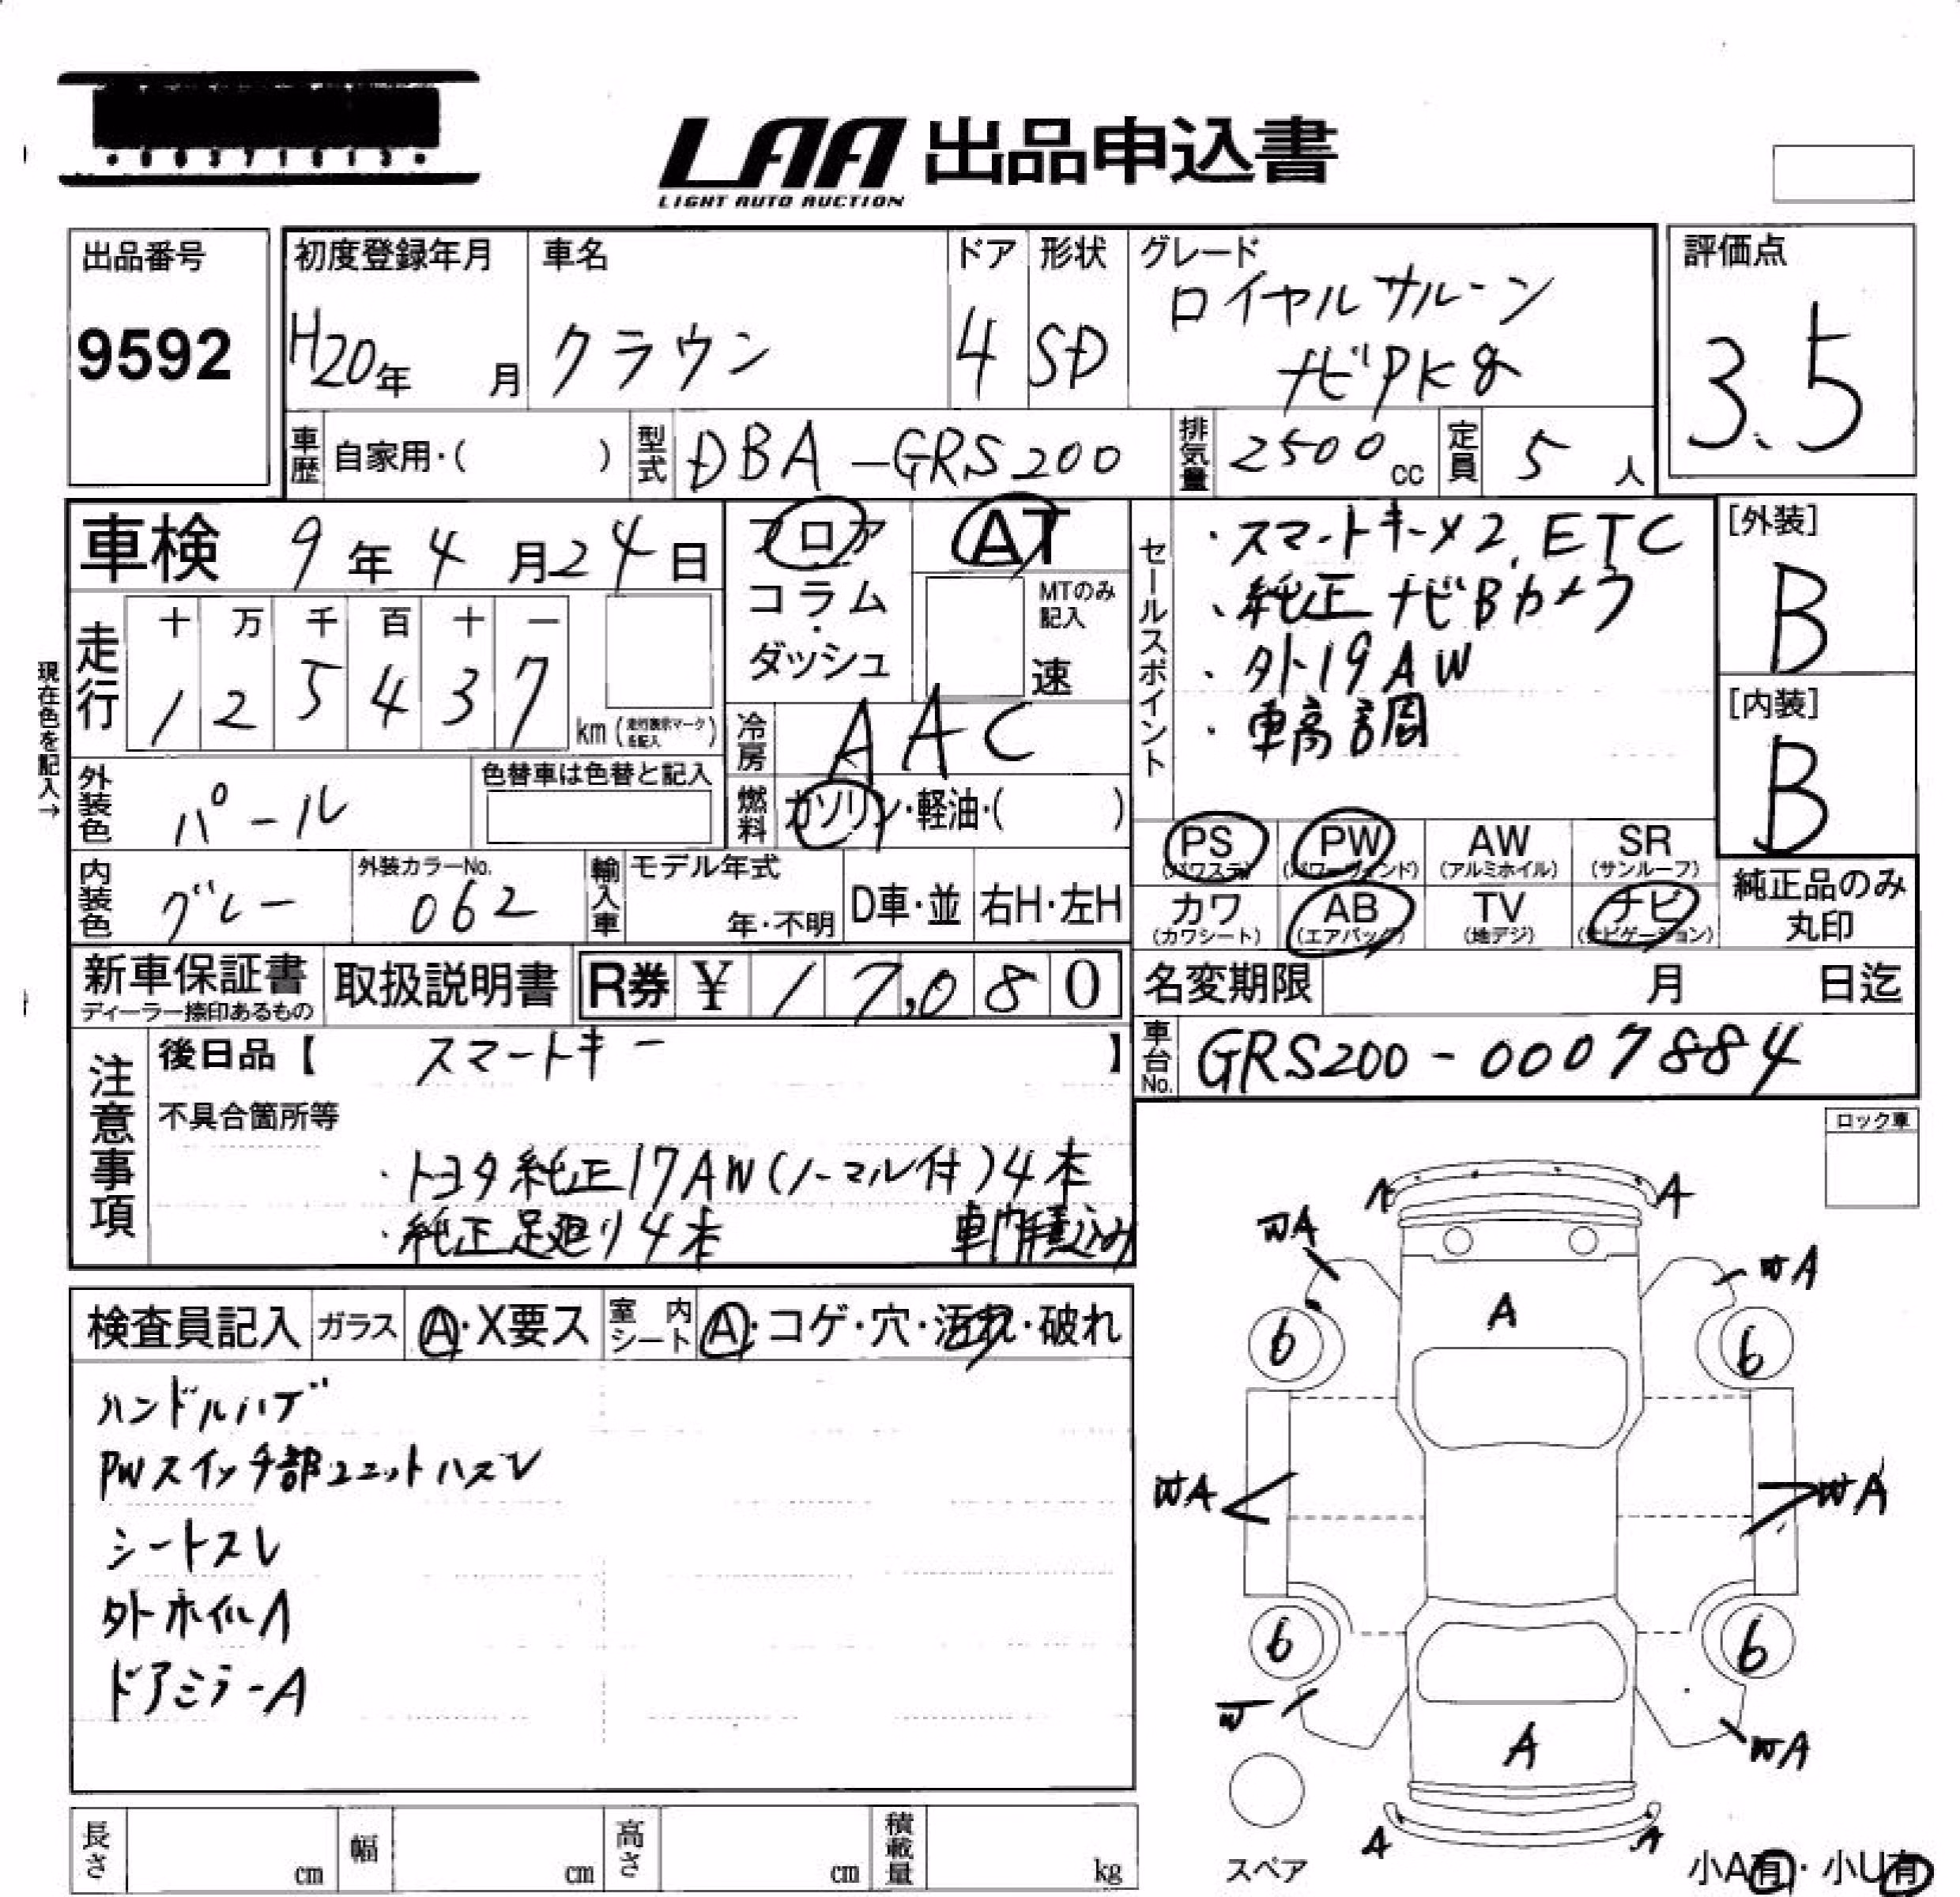 LAA 出品申込書
LIGHT AUTO AUCTION
出品番号
9592
初度登録年月
H20年 月
車名
クラウン
ドア
4
形状
SD
グレード
ロイヤルサルーン
ナビPKg
評価点
3.5
車歴 自家用・( )
型式 DBA-GRS200
排気量 2500cc
定員 5人
車検 9年4月24日
フロア
コラム・
ダッシュ
AT
MTのみ記入
速
セールスポイント
・スマートキー×2, ETC
、純正ナビBカメラ
・外19AW
・車高調
[外装]
B
[内装]
B
現在色を記入→
走行
十 万 千 百 十 一
1 2 5 4 3 7
km (走行表示マークを記入)
冷房 AAC
燃料 ガソリン・軽油・( )
外装色 パール
色替車は色替と記入
内装色 グレー
外装カラーNo.
062
輸入車
モデル年式
年・不明
D車・並
右H・左H
PS
(パワステ)
PW
(パワーウィンド)
AW
(アルミホイル)
SR
(サンルーフ)
カワ
(カワシート)
AB
(エアバック)
TV
(地デジ)
ナビ
(ナビゲーション)
純正品のみ
丸印
新車保証書
ディーラー捺印あるもの
取扱説明書
R券 ¥ 17,080
名変期限 月 日迄
車台No. GRS200-0007884
注意事項
後日品【 スマートキー 】
不具合箇所等
・トヨタ純正17AW(ノーマル付)4本
・純正足廻り4本 車内積込み
ロック車
検査員記入
ガラス Ⓐ・X要ス
室内シート Ⓐ・コゲ・穴・汚れ・破れ
ハンドルハゲ
PWスイッチ部ユニットハズレ
シートスレ
外ホイルA
ドアミラーA
A A
WA WA
A
6 6
WA WA
6 6
W WA
A
A A
スペア
小A有・小U有
長さ cm
幅 cm
高さ cm
積載量 kg